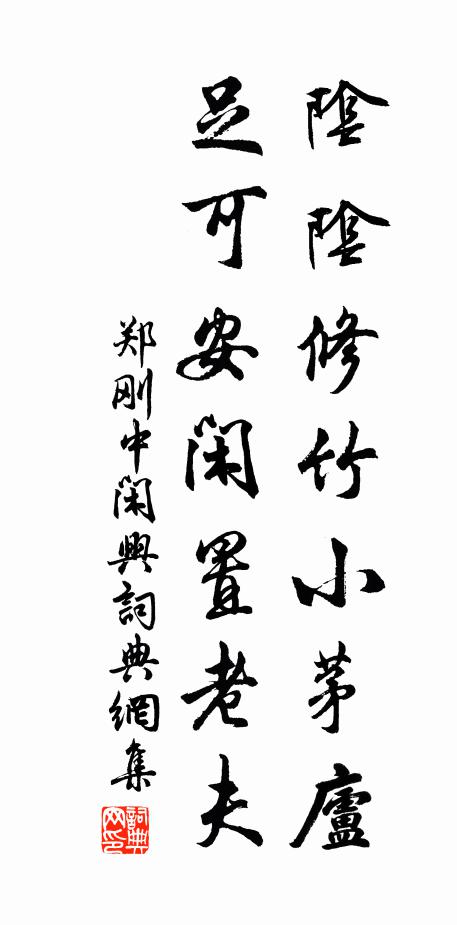 陰陰修竹小茅廬
足可安閑置老夫
郑刚中閑興詞典網集
詞典网印